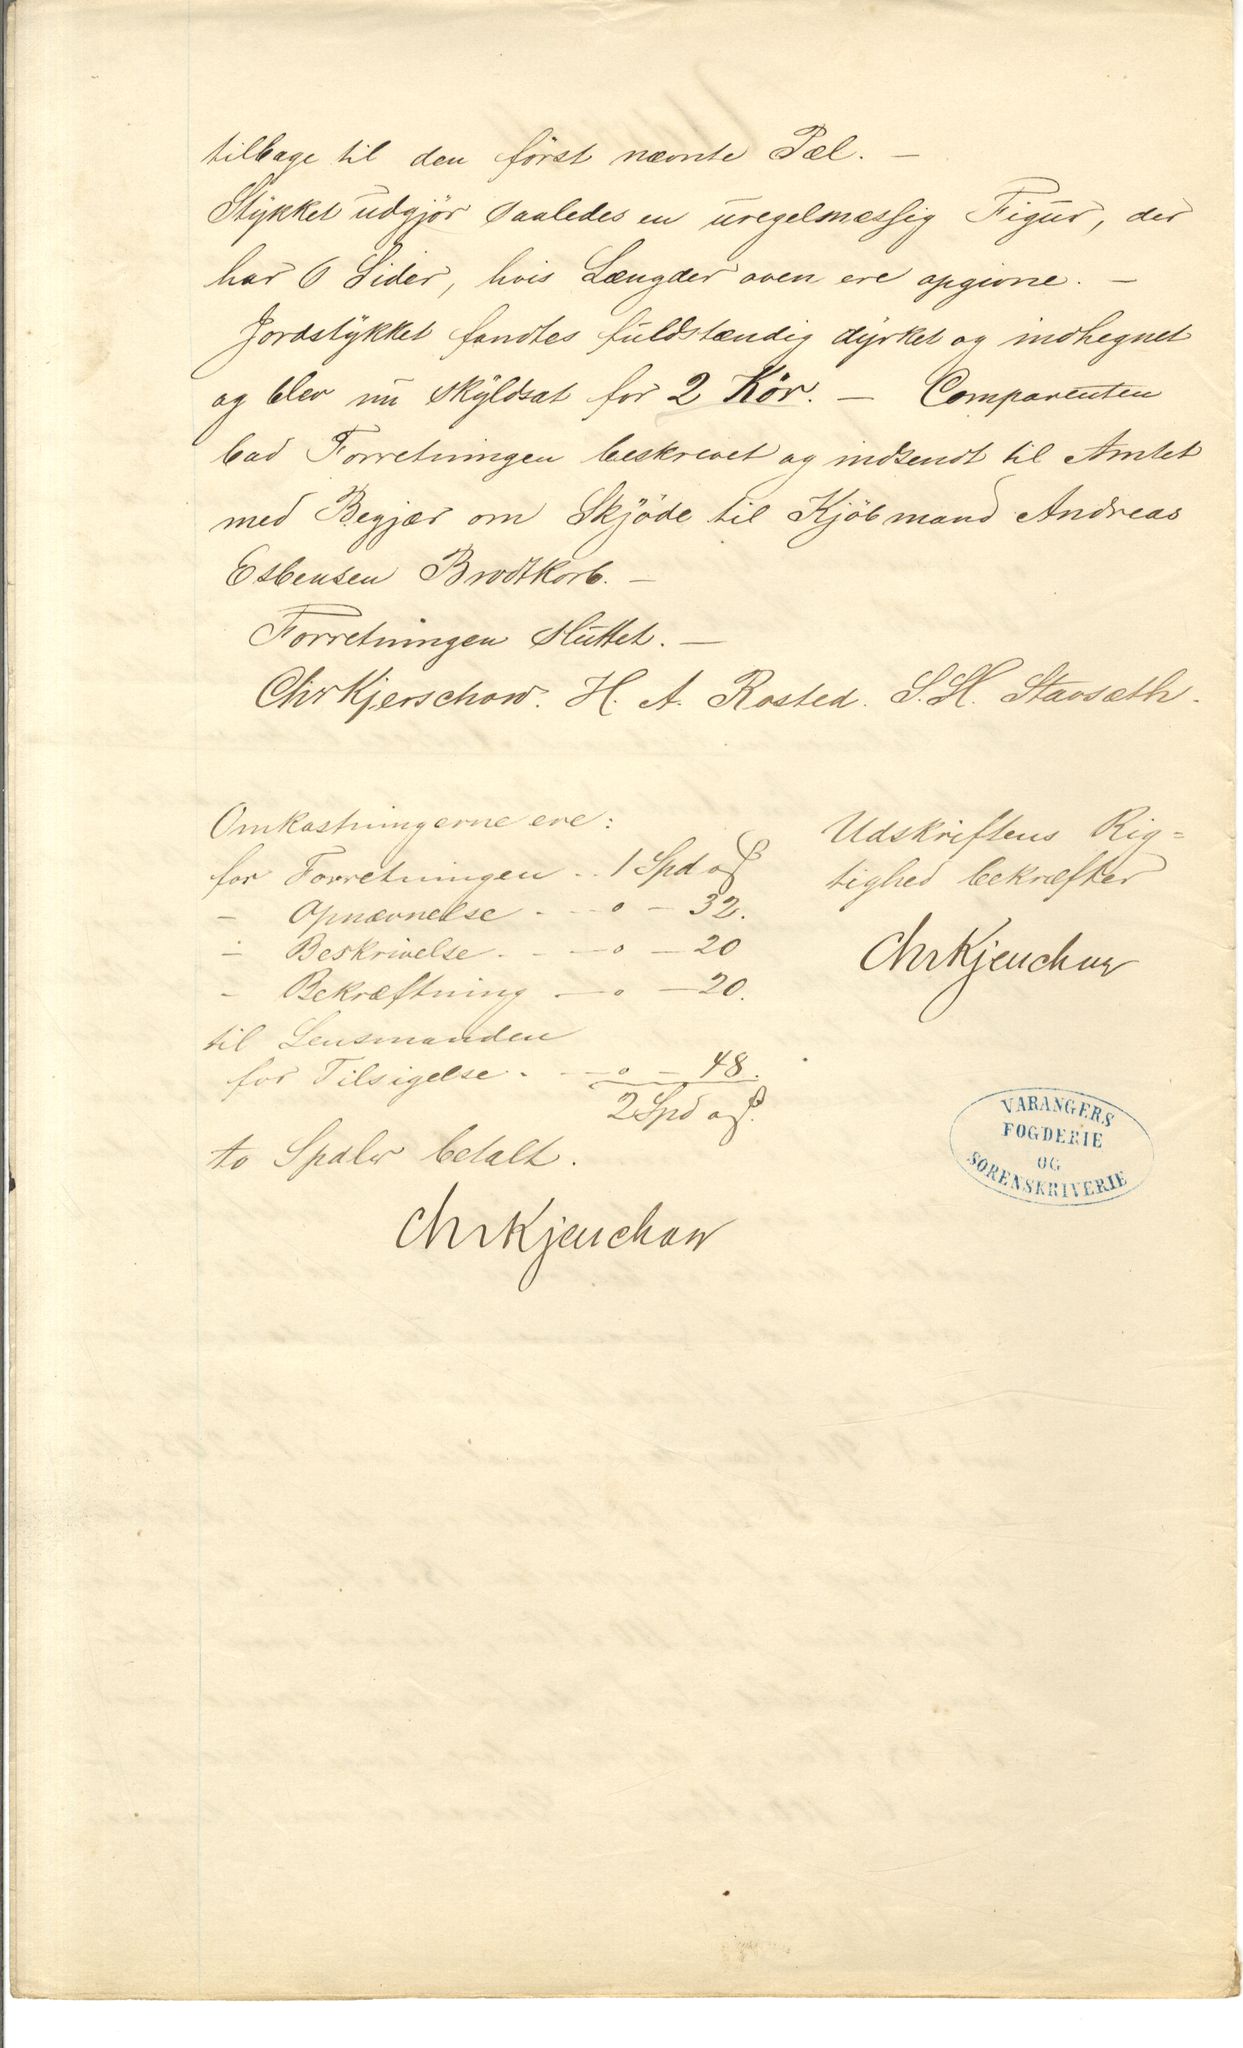 tilbage til den först nævnte Pæl. —
Stykket udgjör saaledes en uregelmæssig Figur, der
har 6 Sider, hvis Længder oven ere opgivne. —
Jordstykket fandtes fuldstændig dyrket og indhegnet
og blev nu skyldsat for 2 Kör. — Comparenten
bad Forretningen beskrevet og indsendt til Amtet
med Begjær om Skjöde til Kjöbmand Andreas
Esbensen Brodtkorb. —
Forretningen sluttet. —
Chr Kjerschow. H. A. Rosted. S. H. Stavsæth.
Omkostningerne ere:
for Forretningen .. 1 Spd
- Opnævnelse . - - o - 32.
- Beskrivelse . - - o - 20
- Bekræftning - - o - 20.
til Lensmanden
for Tilsigelse . - - o - 48.
2 Spd
to Spdlr betalt.
Chr Kjerschow
Udskriftens Rig=
tighed bekræfter
Chr Kjerschow
VARANGERS
FOGDERIE
OG
SORENSKRIVERIE